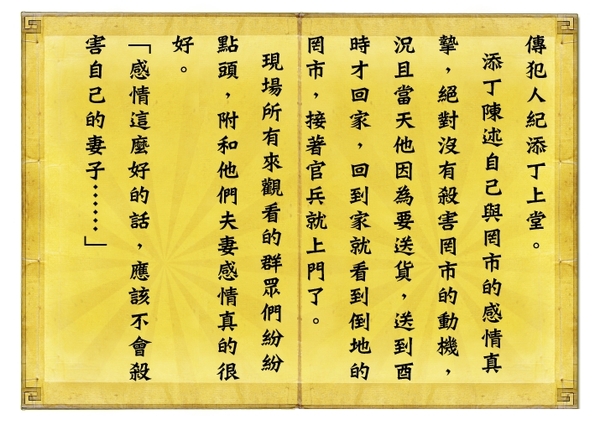 傳犯人紀添丁上堂。
添丁陳述自己與罔市的感情真
摯，絕對沒有殺害罔市的動機，
況且當天他因為要送貨，送到酉
時才回家，回到家就看到倒地的
罔市，接著官兵就上門了。
現場所有來觀看的群眾們紛紛
點頭，附和他們夫妻感情真的很
好。
「感情這麼好的話，應該不會殺
害自己的妻子⋯⋯」